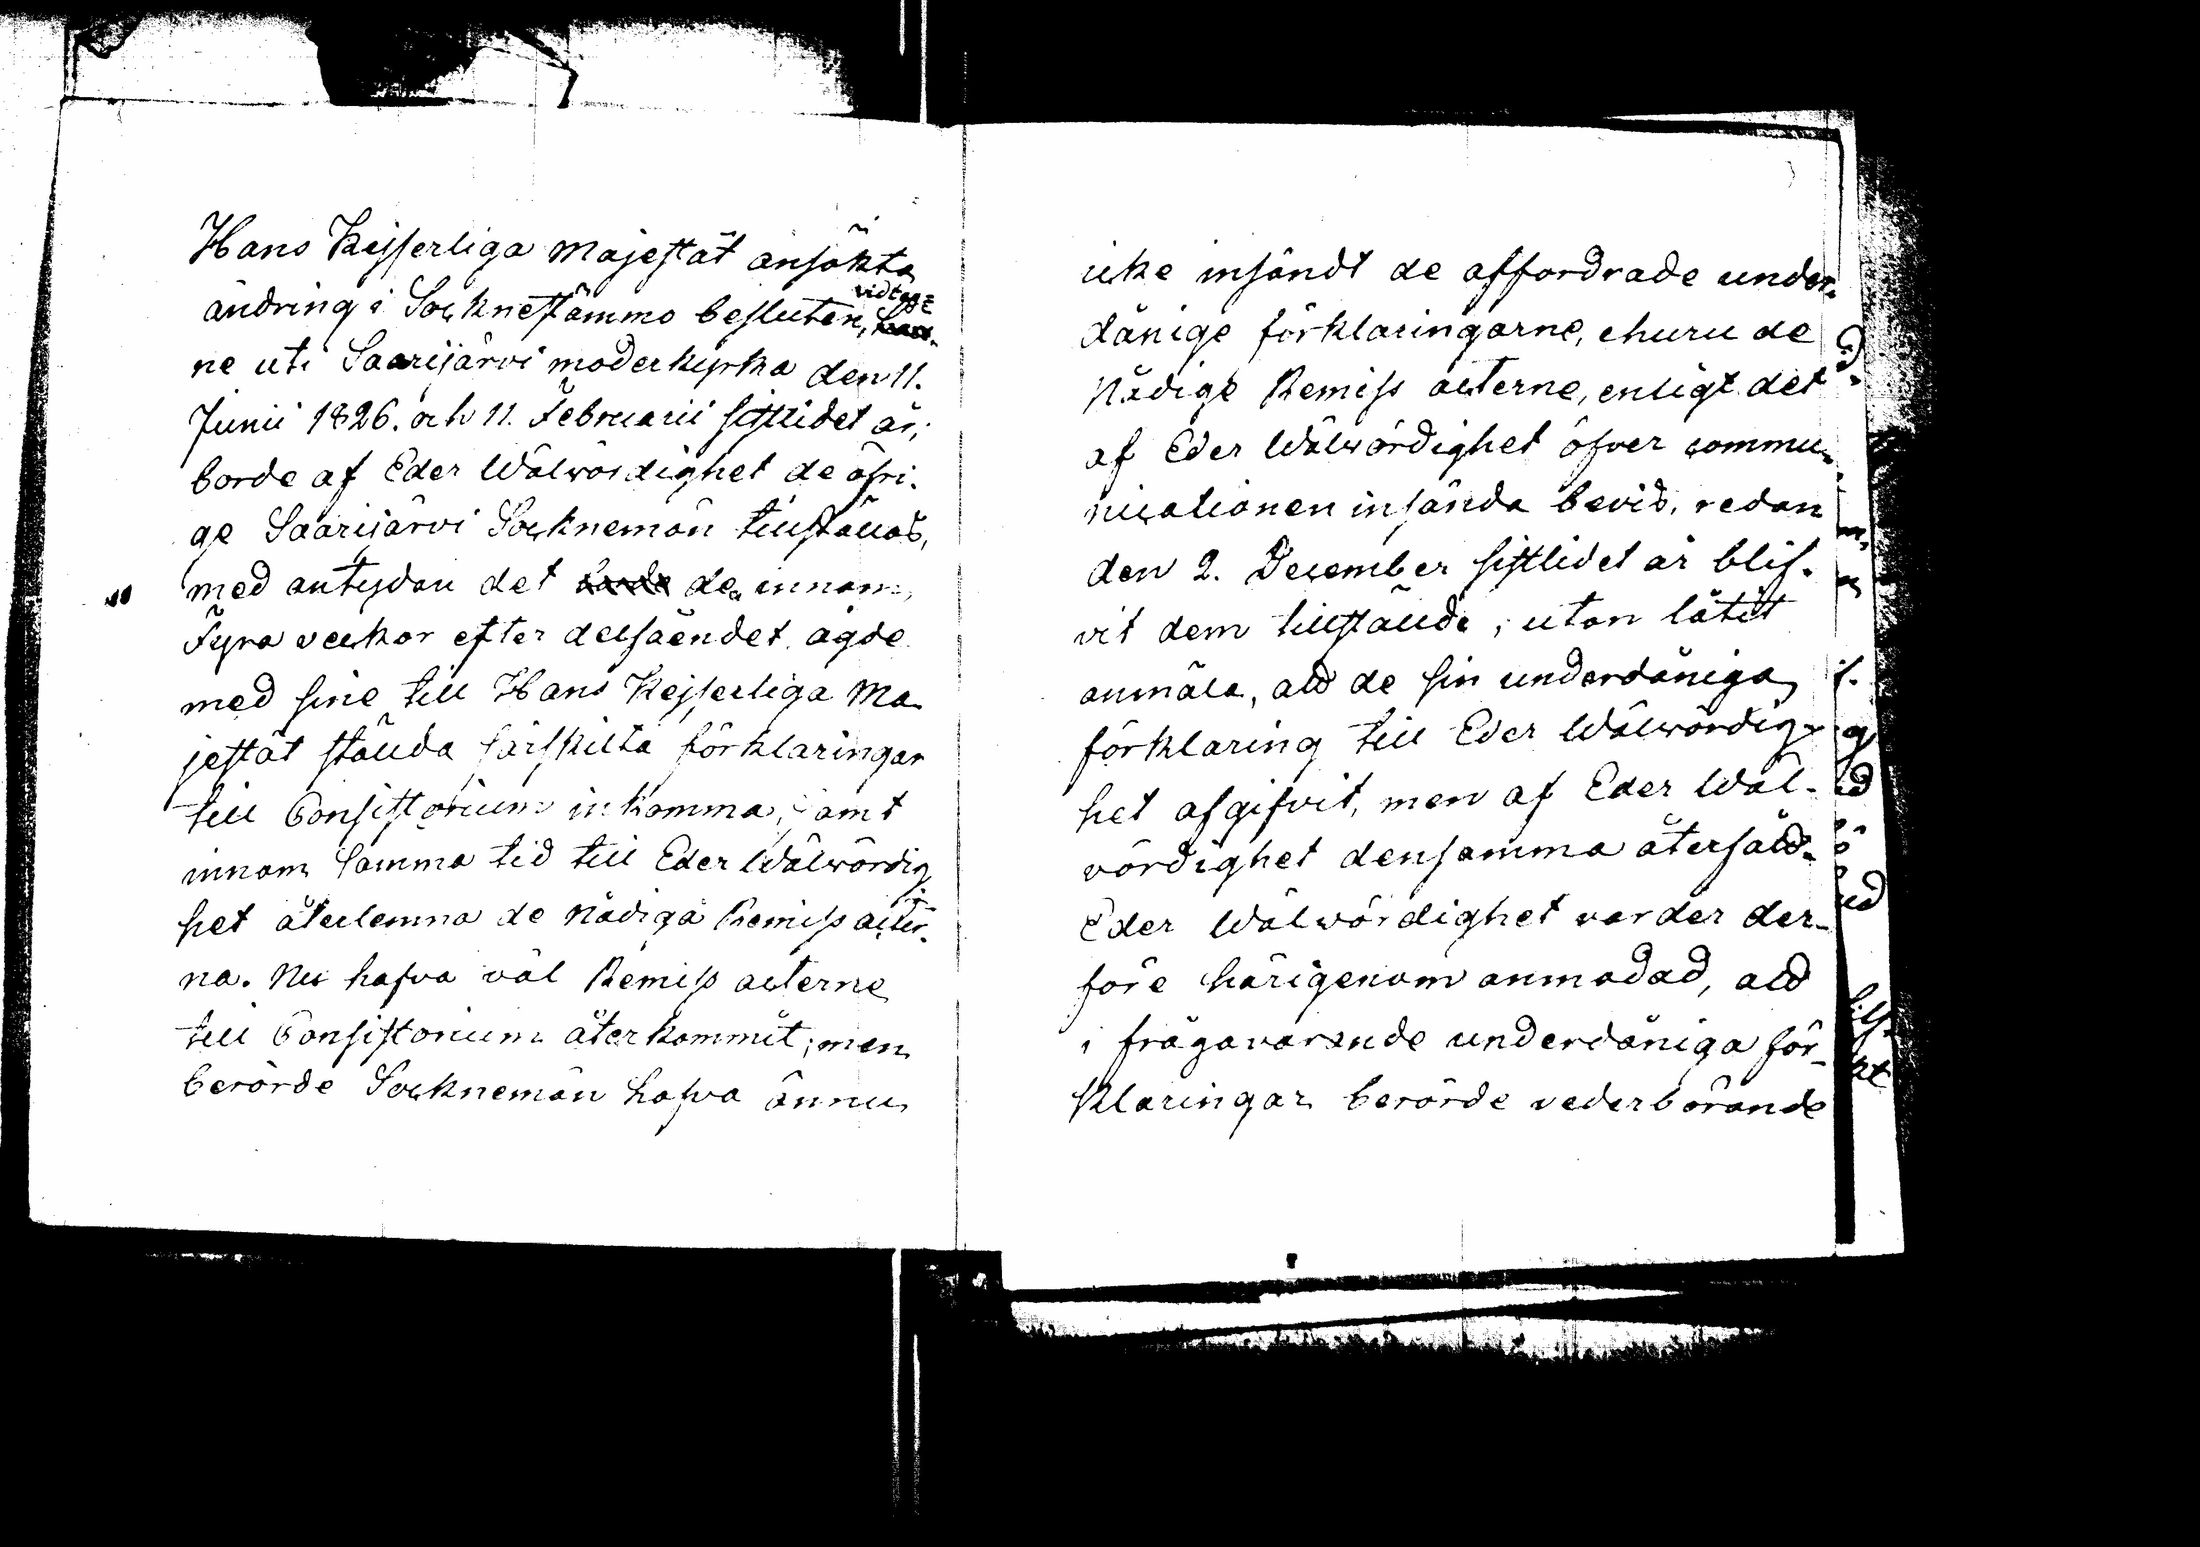 Hans Kejserliga Majestät ansökta
ändring i Socknestämmo besluten, vidtag=
ne uti Saarijärvi moderkyrka den 11.
Junii 1826. och 11. Februarii sistlidet år;
borde af Eder Wälvördighet de öfri-
ge Saarijärvi Socknemän tillställas,
med antydan det de innom
Fyra veckor efter delfåendet ägde
med sine till Hans Kejserliga Ma
jestät stälda särskilta förklaringar
till Consistorium inkomma, samt
innom samma tid till Eder Wälvördig
het återlemna de Nådiga Remiss acter-
na. Nu hafva väl Remiss acterne
till Consistorium återkommit; men
berörde Socknemän hafva ännu
icke insändt de affordrade under-
dånige förklaringarne, ehuru de
Nådige Remiss acterne, enligt det
af Eder Wälvördighet öfver commu-
nicationen insända bevis, redan
den 2. December sistlidet år blif-
vit dem tillstälde, utan låtit
anmäla, att de sin underdåniga
förklaring till Eder Wälvördig-
het afgifvit, men af Eder Wäl-
vördighet densamma återfått.
Eder Wälvördighet varder der-
före härigenom anmodad, att
i frågavarande underdåniga för-
klaringar berörde vederbörande